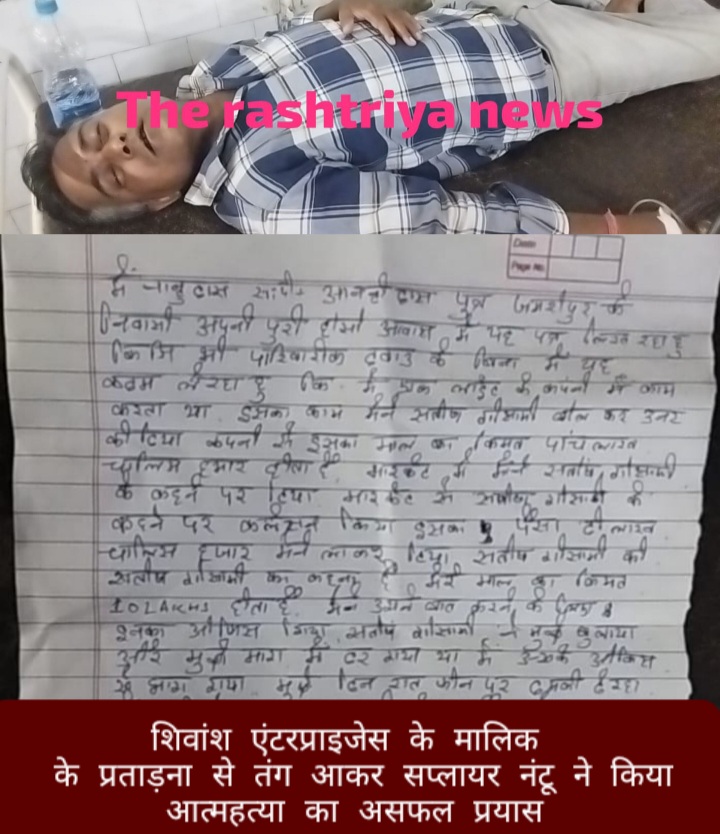 The rashtriya news
Date
Page No.
में नान्टु दास सं:पी॰ आनन्दी दास पुत्र जमशेदपुर के
निवासी अपनी पुरी होसो आवास में यह पत्र लिख रहा हु
कि मि भी पारिवारीक दवाउ के बिना में यह
कदम ले रहा हु कि. में एक लाईट के कंपनी में काम
करता था. इसका काम मेने सतीष गोसामी बोल कर उनर
को दिया कंपनी से इसका माल का किमत पांच लाख
चालिस हजार होता है. मारकेट में मेंने सतीष गोसामी
के कहने पर दिया मारकेट से सतीष गोसामी के
कहने पर कलेसन किया इसका पैसा दो लाख
चालिस हजार मेने लाकर दिया सतीष गोसामी को
सतीष गोसामी का कहना है मेरे माल का किमत
10 LAKHS होता है. मेने उसने बात करने के लिए
इनका ऑफिस गिया सतीष गोसामी ने मुझे बुलाया
और मुझे मारा में डर गया था में उसके ऑफिस
से भाग गाया मुझे दिन रात फोन पर धमकी दे रहा
शिवांश एंटरप्राइजेस के मालिक
के प्रताड़ना से तंग आकर सप्लायर नंटू ने किया
आत्महत्या का असफल प्रयास